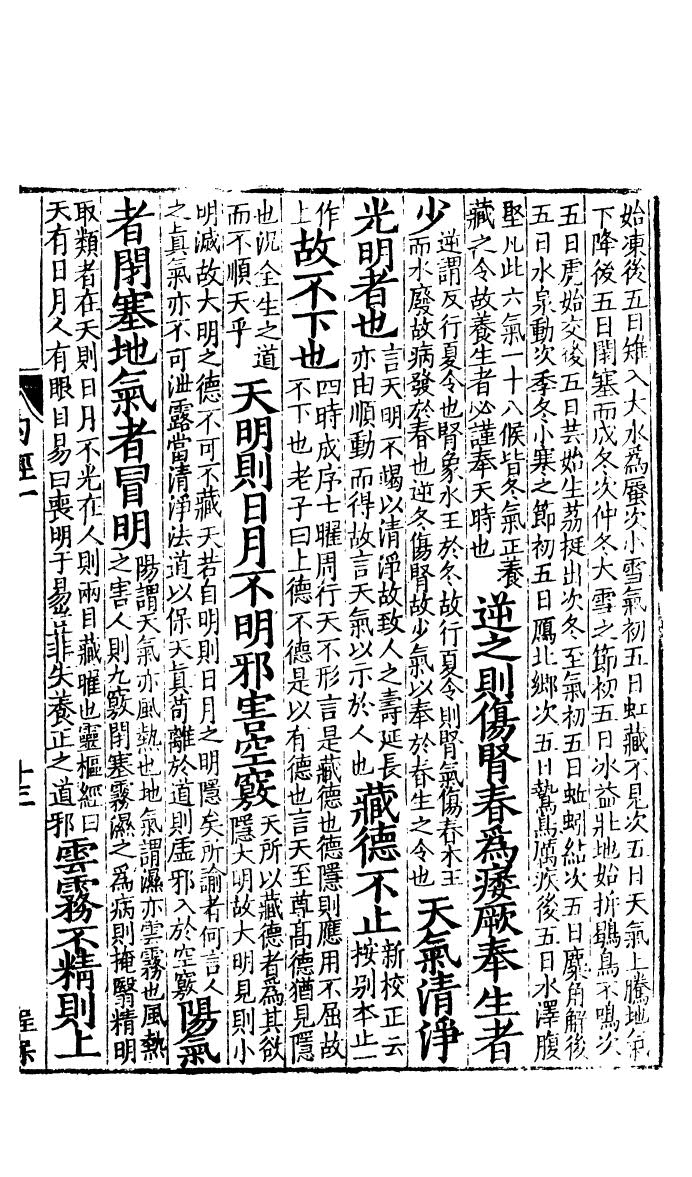 始凍後五日雉入大水爲蜃次小雪氣初五日虹藏不見次五日天氣上騰地氣
下降後五日閉塞而成冬次仲冬大雪之節初五日冰益壯地始拆鶡鳥不鳴次
五日虎始交後五日芸始生荔挺出次冬至氣初五日蚯蚓結次五日麋角解後
五日水泉動次季冬小寒之節初五日鴈北鄉次五日鷙鳥厲疾後五日水澤腹
堅凡此六氣一十八候皆冬氣正養
藏之令故養生者必謹奉天時也
逆之則傷腎春爲痿厥奉生者
少
逆謂反行夏令也腎象水王於冬故行夏令則腎氣傷春木王
而水廢故病發於春也逆冬傷腎故少氣以奉於春生之令也
天氣清淨
光明者也
言天明不竭以清淨故致人之壽延長
亦由順動而得故言天氣以示於人也
藏德不止
新校正云
按别本止一
作
上
故不下也
四時成序七曜周行天不形言是藏德也德隱則應用不屈故
不下也老子曰上德不德是以有德也言天至尊高德猶見隱
也況全生之道
而不順天乎
天明則日月不明邪害空竅
天所以藏德者爲其欲
隱大明故大明見則小
明滅故大明之德不可不藏天若自明則日月之明隱矣所諭者何言人
之真氣亦不可泄露當清淨法道以保天真苟離於道則虛邪入於空竅
陽氣
者閉塞地氣者冒明
陽謂天氣亦風熱也地氣謂濕亦雲霧也風熱
之害人則九竅閉塞霧濕之爲病則掩翳精明
取類者在天則日月不光在人則兩目藏曜也靈樞經曰
天有日月人有眼目易曰喪明于易豈非失養正之道邪
雲霧不精則上
内經一
十三